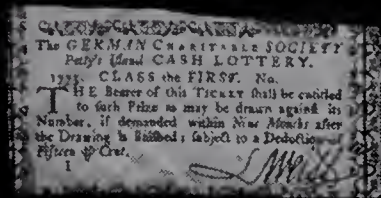 The GERMAN CHARITABLE SOCIETY
Petty's Island CASH LOTTERY.
1773. CLASS the FIRST. No.
THE Bearer of this TICKET shall be entitled
to such Prize as may be drawn against its
Number, if demanded within Nine Months after
the Drawing is finished; subject to a Deduction of
Fifteen ⅌ Cent.
I